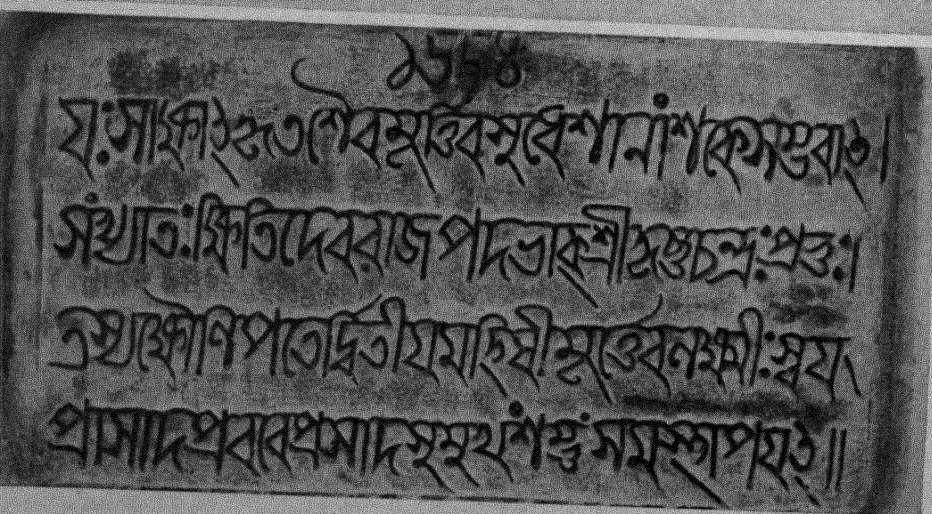 ১৬৮৪
যঃসাক্ষাৎকৃতশৈবমূর্ত্তিবসুধেশানাংশকেসম্ভবাৎ।
সংখ্যাতঃক্ষিতিদেবরাজপদভাক্শ্রীকৃষ্ণচন্দ্রঃপ্রভুঃ।
তস্যক্ষৌণিপতের্দ্বিতীযমহিষীমূর্ত্তেবলক্ষ্মীঃস্বযং
প্রাসাদপ্রবরেপ্রসাদসুমুখংশম্ভুংসমস্থাপযৎ॥